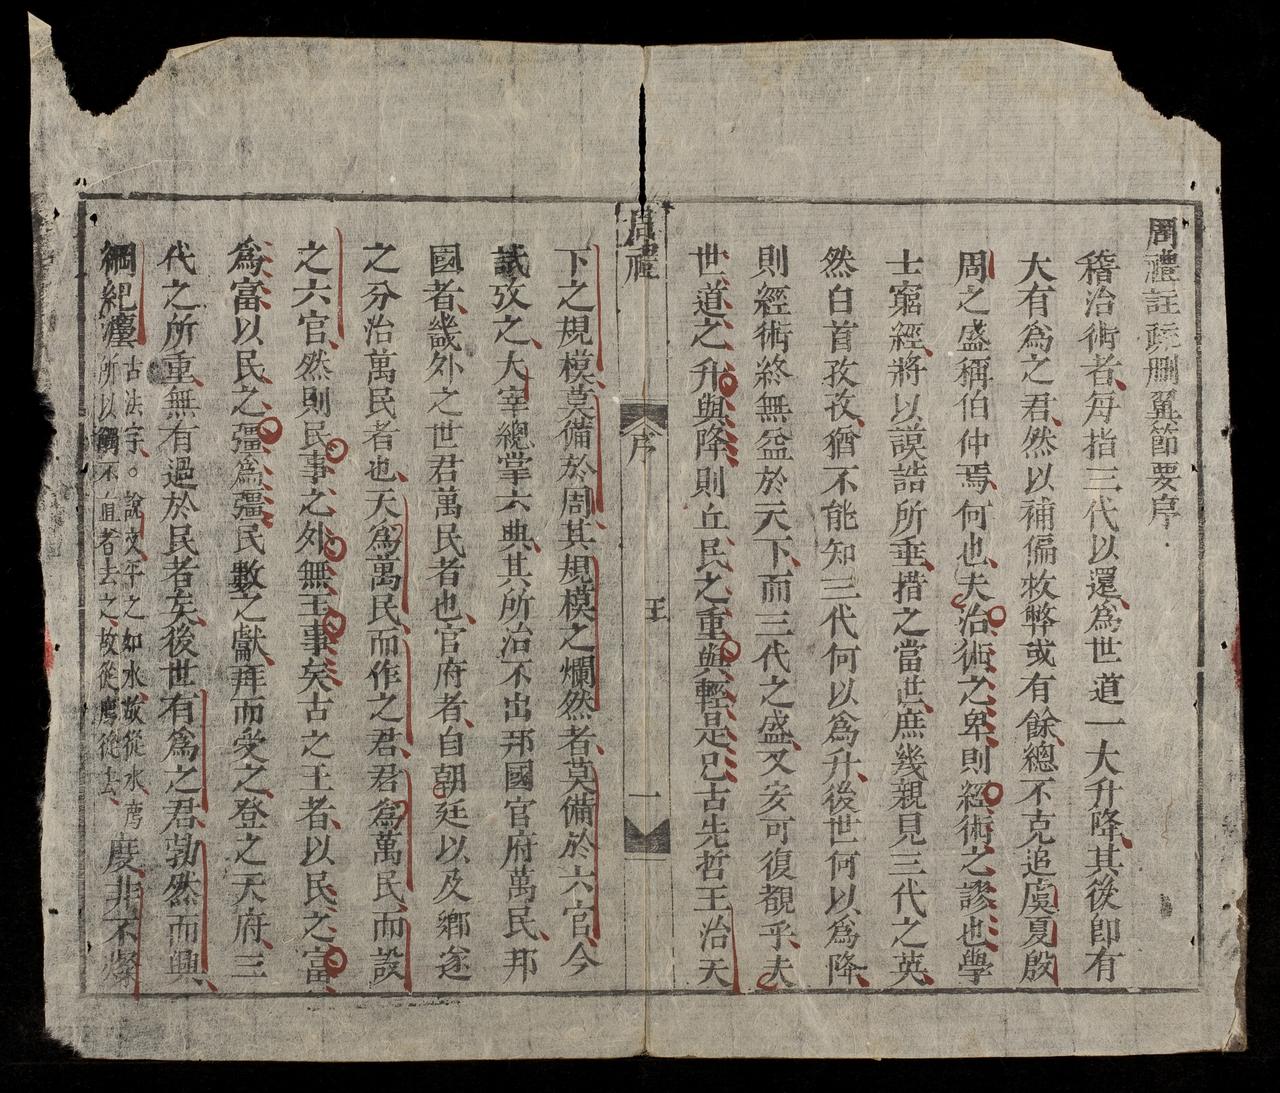 周禮註疏刪翼節要序
稽治術者每指三代以還爲世道一大升降其後卽有
大有爲之君然以補偏救弊或有餘總不克追虞夏殷
周之盛稱伯仲焉何也夫治術之卑則經術之謬也學
士窮經將以謨誥所垂措之當世庶幾親見三代之英
然白首孜孜猶不能知三代何以爲升後世何以爲降
則經術終無益於天下而三代之盛又安可復覩乎夫
世道之升與降則丘民之重與輕是已古先哲王治天
周禮
序
王
一
下之規模莫備於周其規模之爛然者莫備於六官今
試攷之大宰總掌六典其所治不出邦國官府萬民邦
國者畿外之世君萬民者也官府者自朝廷以及鄉遂
之分治萬民者也天爲萬民而作之君君爲萬民而設
之六官然則民事之外無王事矣古之王者以民之富
爲富以民之彊爲彊民數之獻拜而受之登之天府三
代之所重無有過於民者矣後世有爲之君勃然而興
綱紀灋
古法字。說文平之如水故從水廌
所以觸不直者去之故從廌從去
度非不燦